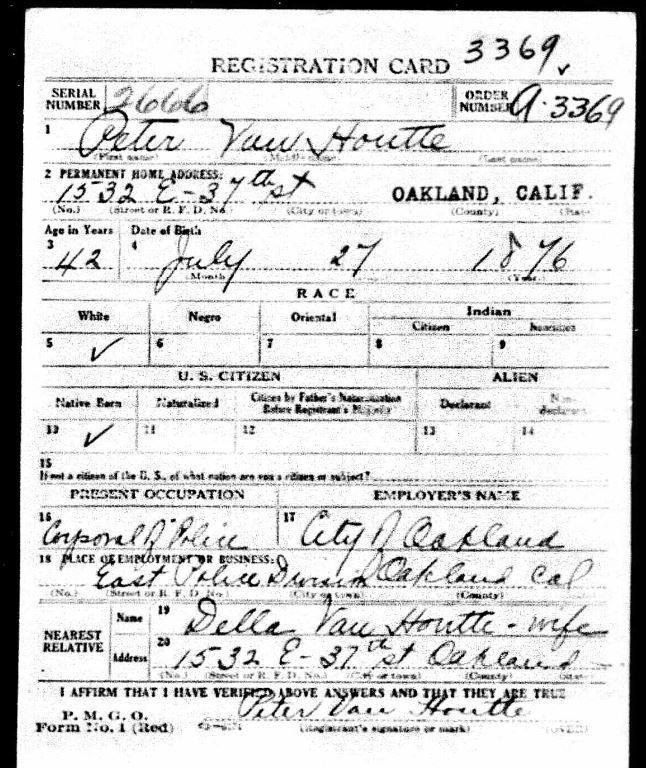 3369
REGISTRATION CARD
SERIAL NUMBER 2666 ORDER NUMBER A-3369
1 Peter Van Houtte
(First name) (Middle name) (Last name)
2 PERMANENT HOME ADDRESS:
1532 E-37th st OAKLAND, CALIF.
(No.) (Street or R. F. D. No.) (City or town) (County) (State)
Age in Years Date of Birth
3 42 4 July 27 1876
(Month) (Year)
RACE
White Negro Oriental Indian
Citizen Noncitizen
5 ✓ 6 7 8 9
U. S. CITIZEN ALIEN
Native Born Naturalized Citizen by Father's Naturalization Before Registrant's Majority Declarant Non-declarant
10 ✓ 11 12 13 14
15
If not a citizen of the U. S., of what nation are you a citizen or subject?
PRESENT OCCUPATION EMPLOYER'S NAME
16 Corporal of Police 17 City of Oakland
18 PLACE OF EMPLOYMENT OR BUSINESS:
East Police Division Oakland Cal
(No.) (Street or R. F. D. No.) (City or town) (County)
NEAREST RELATIVE Name 19 Della Van Houtte - wife
Address 20 1532 E-37th st Oakland
(No.) (Street or R. F. D. No.) (City or town) (County) (State)
I AFFIRM THAT I HAVE VERIFIED ABOVE ANSWERS AND THAT THEY ARE TRUE
P. M. G. O.
Form No. 1 (Red) Peter Van Houtte
(Registrant's signature or mark) (OVER)